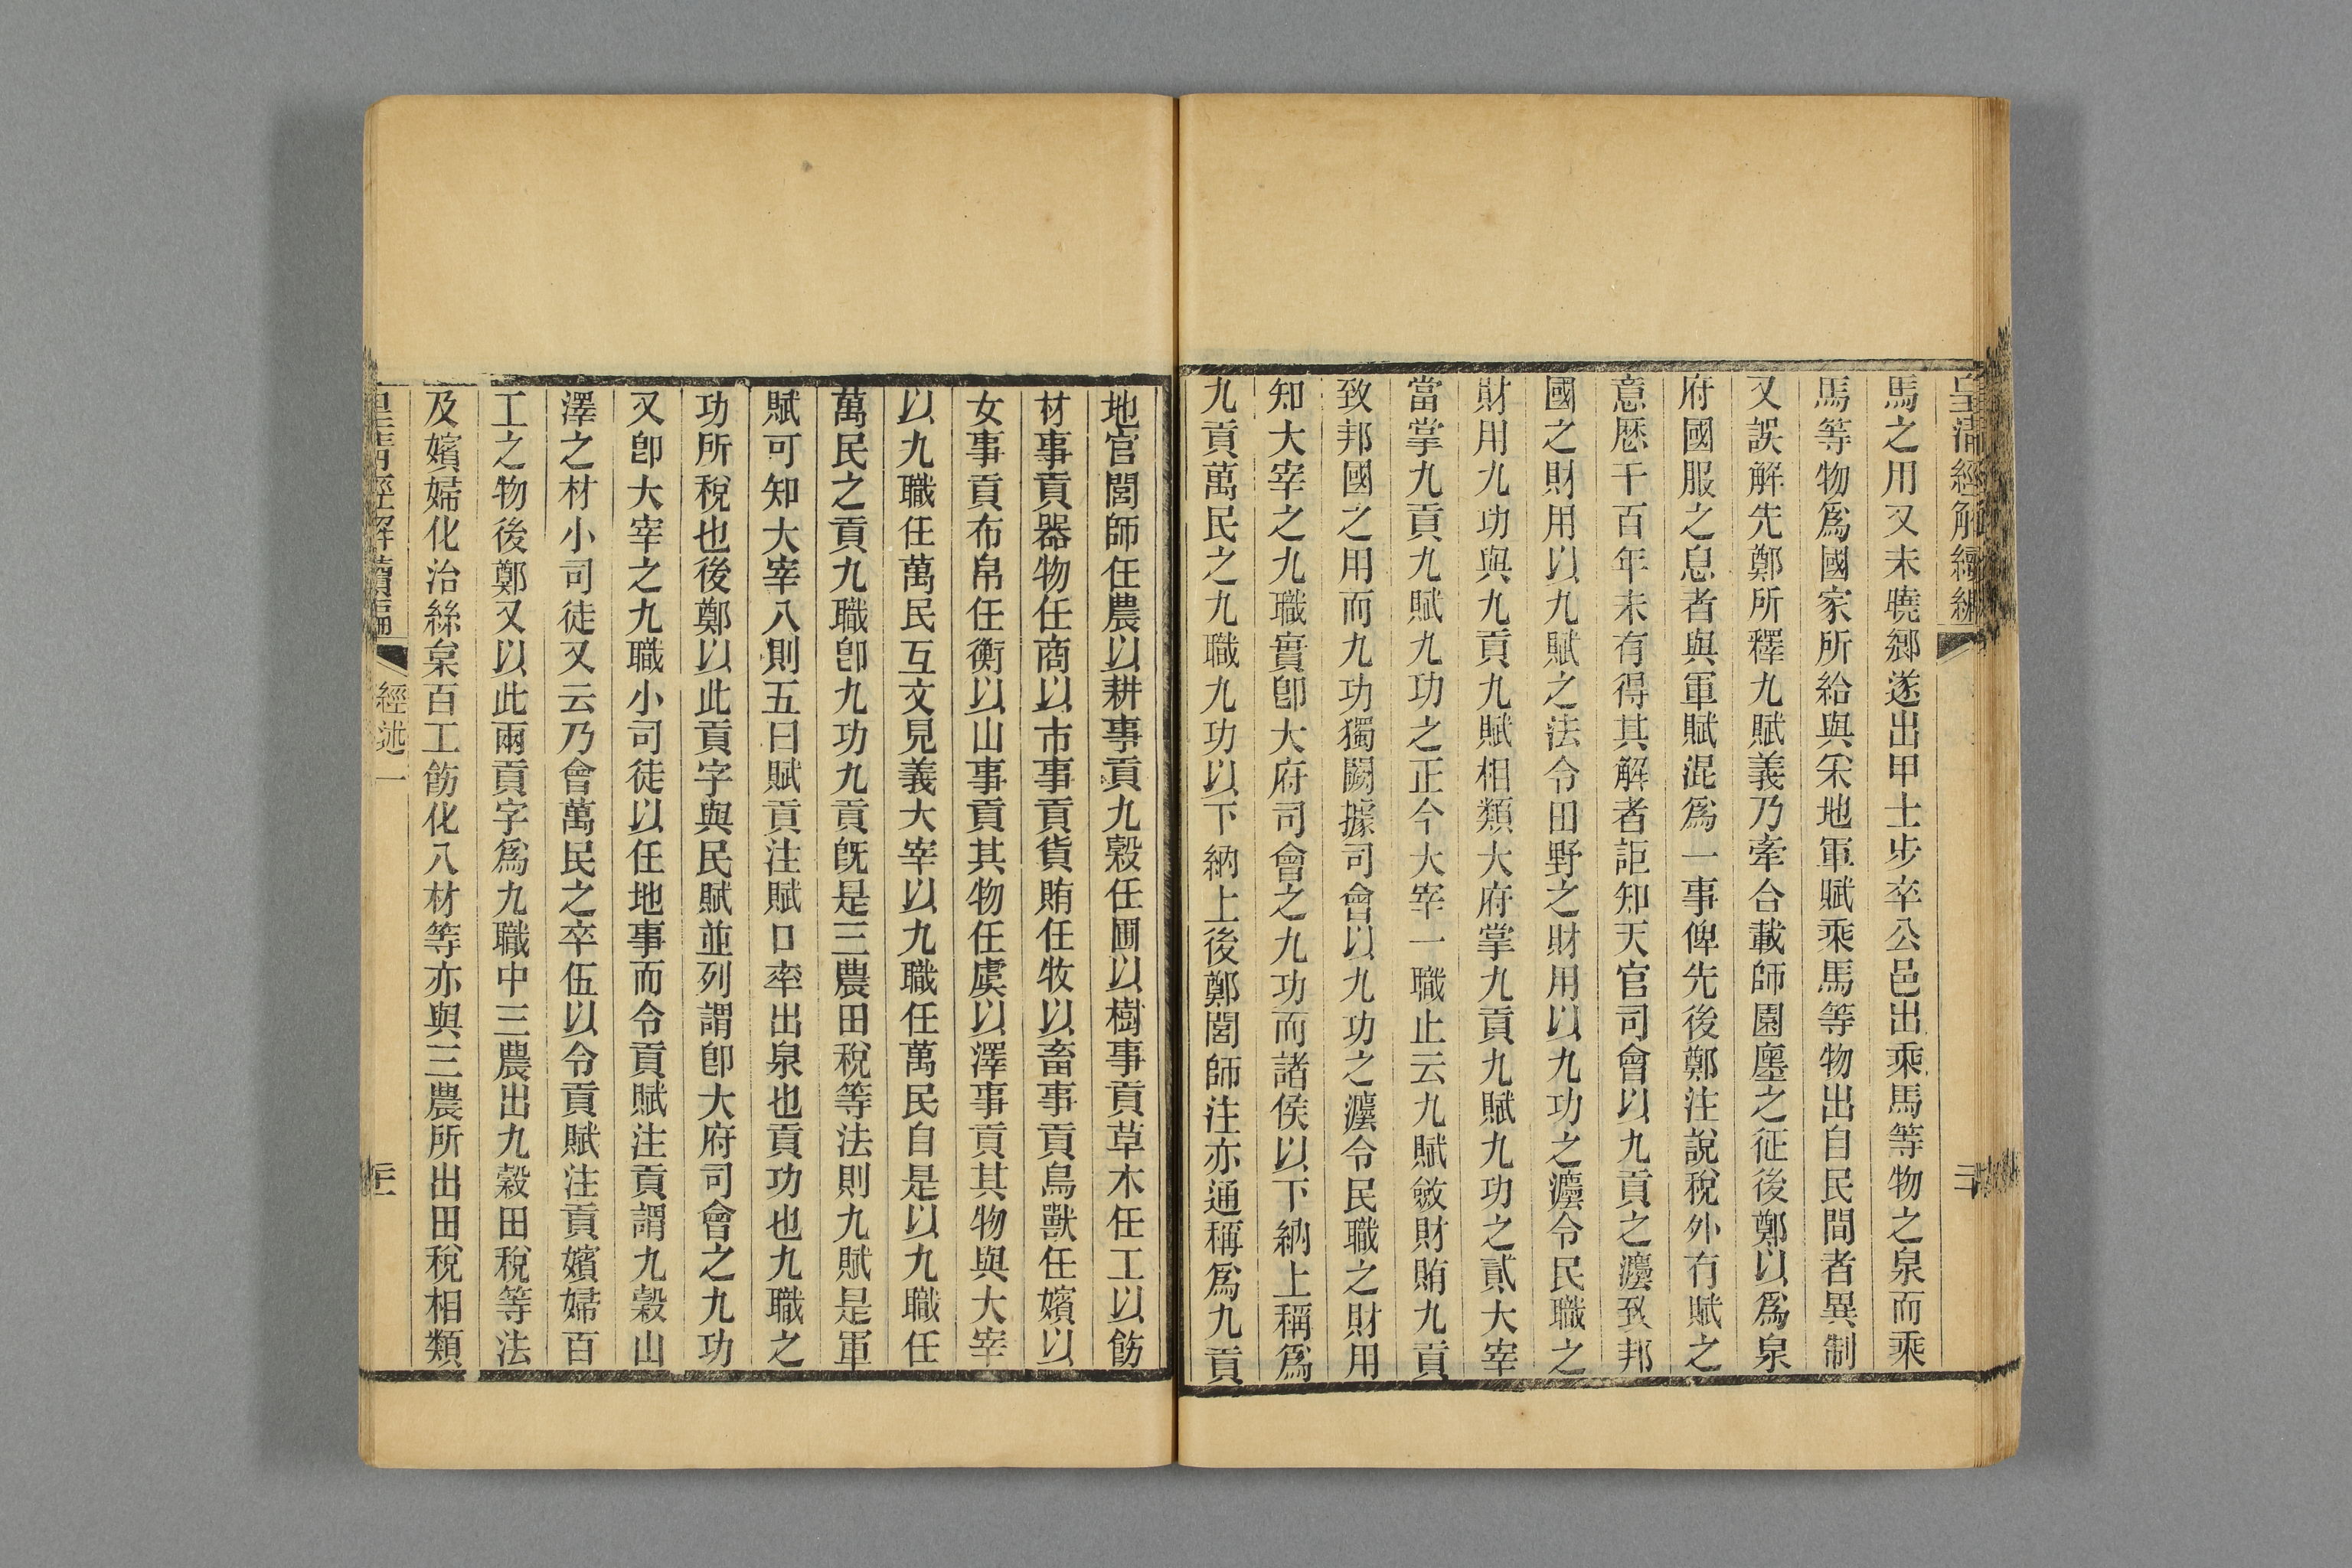 皇淸經解續編
馬之用又未曉鄕遂出甲士步卒公邑出乘馬等物之泉而乘
馬等物爲國家所給與采地軍賦乘馬等物出自民間者異制
又誤解先鄭所釋九賦義乃牽合載師園廛之征後鄭以爲泉
府國服之息者與軍賦混爲一事俾先後鄭注說稅外有賦之
意厯千百年未有得其解者詎知天官司會以九貢之灋致邦
國之財用以九賦之法令田野之財用以九功之灋令民職之
財用九功與九貢九賦相類大府掌九貢九賦九功之貳大宰
當掌九貢九賦九功之正今大宰一職止云九賦斂財賄九貢
致邦國之用而九功獨闕據司會以九功之灋令民職之財用
知大宰之九職實卽大府司會之九功而諸侯以下納上稱爲
九貢萬民之九職九功以下納上後鄭閭師注亦通稱爲九貢
地官閭師任農以耕事貢九穀任圃以樹事貢草木任工以飭
材事貢器物任商以市事貢貨賄任牧以畜事貢鳥獸任嬪以
女事貢布帛任衡以山事貢其物任虞以澤事貢其物與大宰
以九職任萬民互文見義大宰以九職任萬民自是以九職任
萬民之貢九職卽九功九貢旣是三農田稅等法則九賦是軍
賦可知大宰八則五曰賦貢注賦口率出泉也貢功也九職之
功所稅也後鄭以此貢字與民賦並列謂卽大府司會之九功
又卽大宰之九職小司徒以任地事而令貢賦注貢謂九穀山
澤之材小司徒又云乃會萬民之卒伍以令貢賦注貢嬪婦百
工之物後鄭又以此兩貢字爲九職中三農出九穀田稅等法
及嬪婦化治絲枲百工飭化八材等亦與三農所出田稅相類
皇淸經解續編 經述一